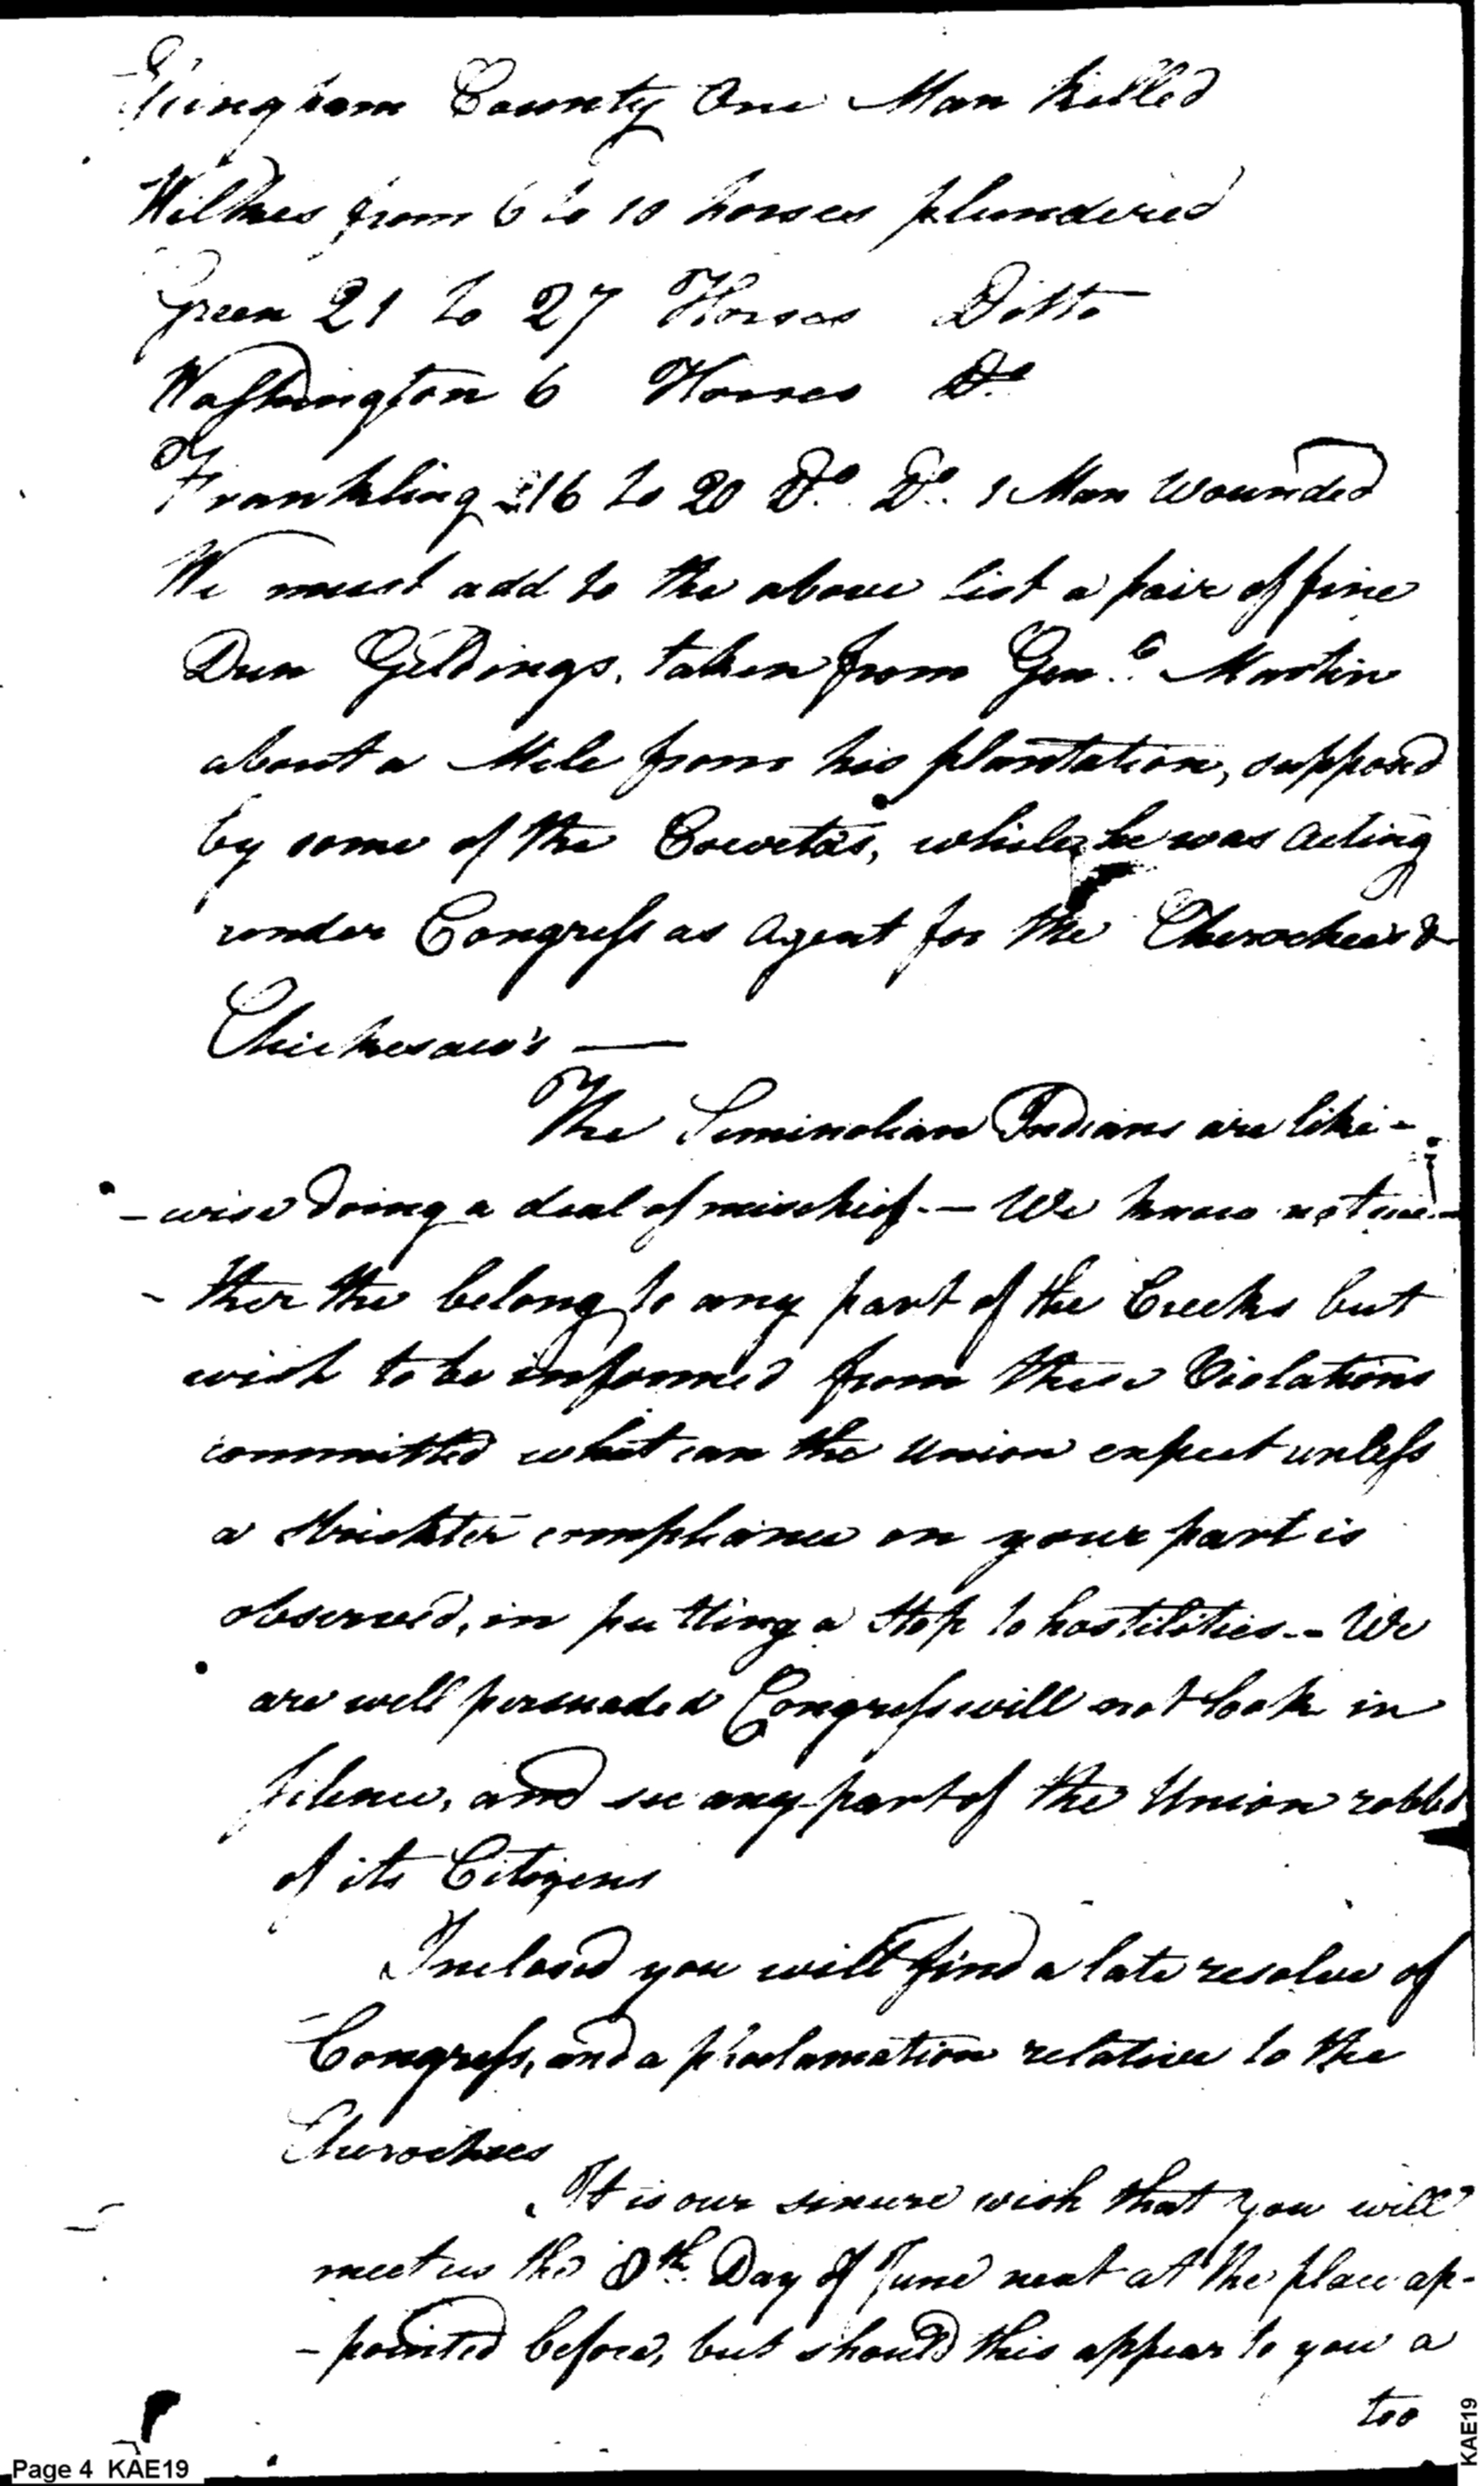 Effingham County One Man killed
Wilkes from 6 to 10 horses plundered
Green 21 to 27 Horses Ditto
Washington 6 Horses Do.
Frankling 16 to 20 Do. Do. 1 Man Wounded
We must add to the above list a pair of fine
Dun Geldings, taken from Genl. Martin
about a Mile from his plantation, supposed
by some of the Cowetas, while he was acting
under Congress as Agent for the Cherockees &
Chickesaw's —
The Seminolian Indians are like-
-wise doing a deal of mischief. — We know not
-ther the belong to any part of the Creeks but
wish to be informed from these Violations
committed what can the Union expect unless
a strickter compliance on your part is
observed, in putting a stop to hostilities. -- We
are well persuaded Congress will not look in
silence, and see any part of the Union robbed
of its Citizens
Inclosed you will find a late resolve of
Congress, and a proclamation relative to the
Cherockees
It is our sincere wish that you will
meet us the 8th. Day of June next at the place ap-
-pointed before, but should this appear to you a
too
Page 4 KAE19
KAE19